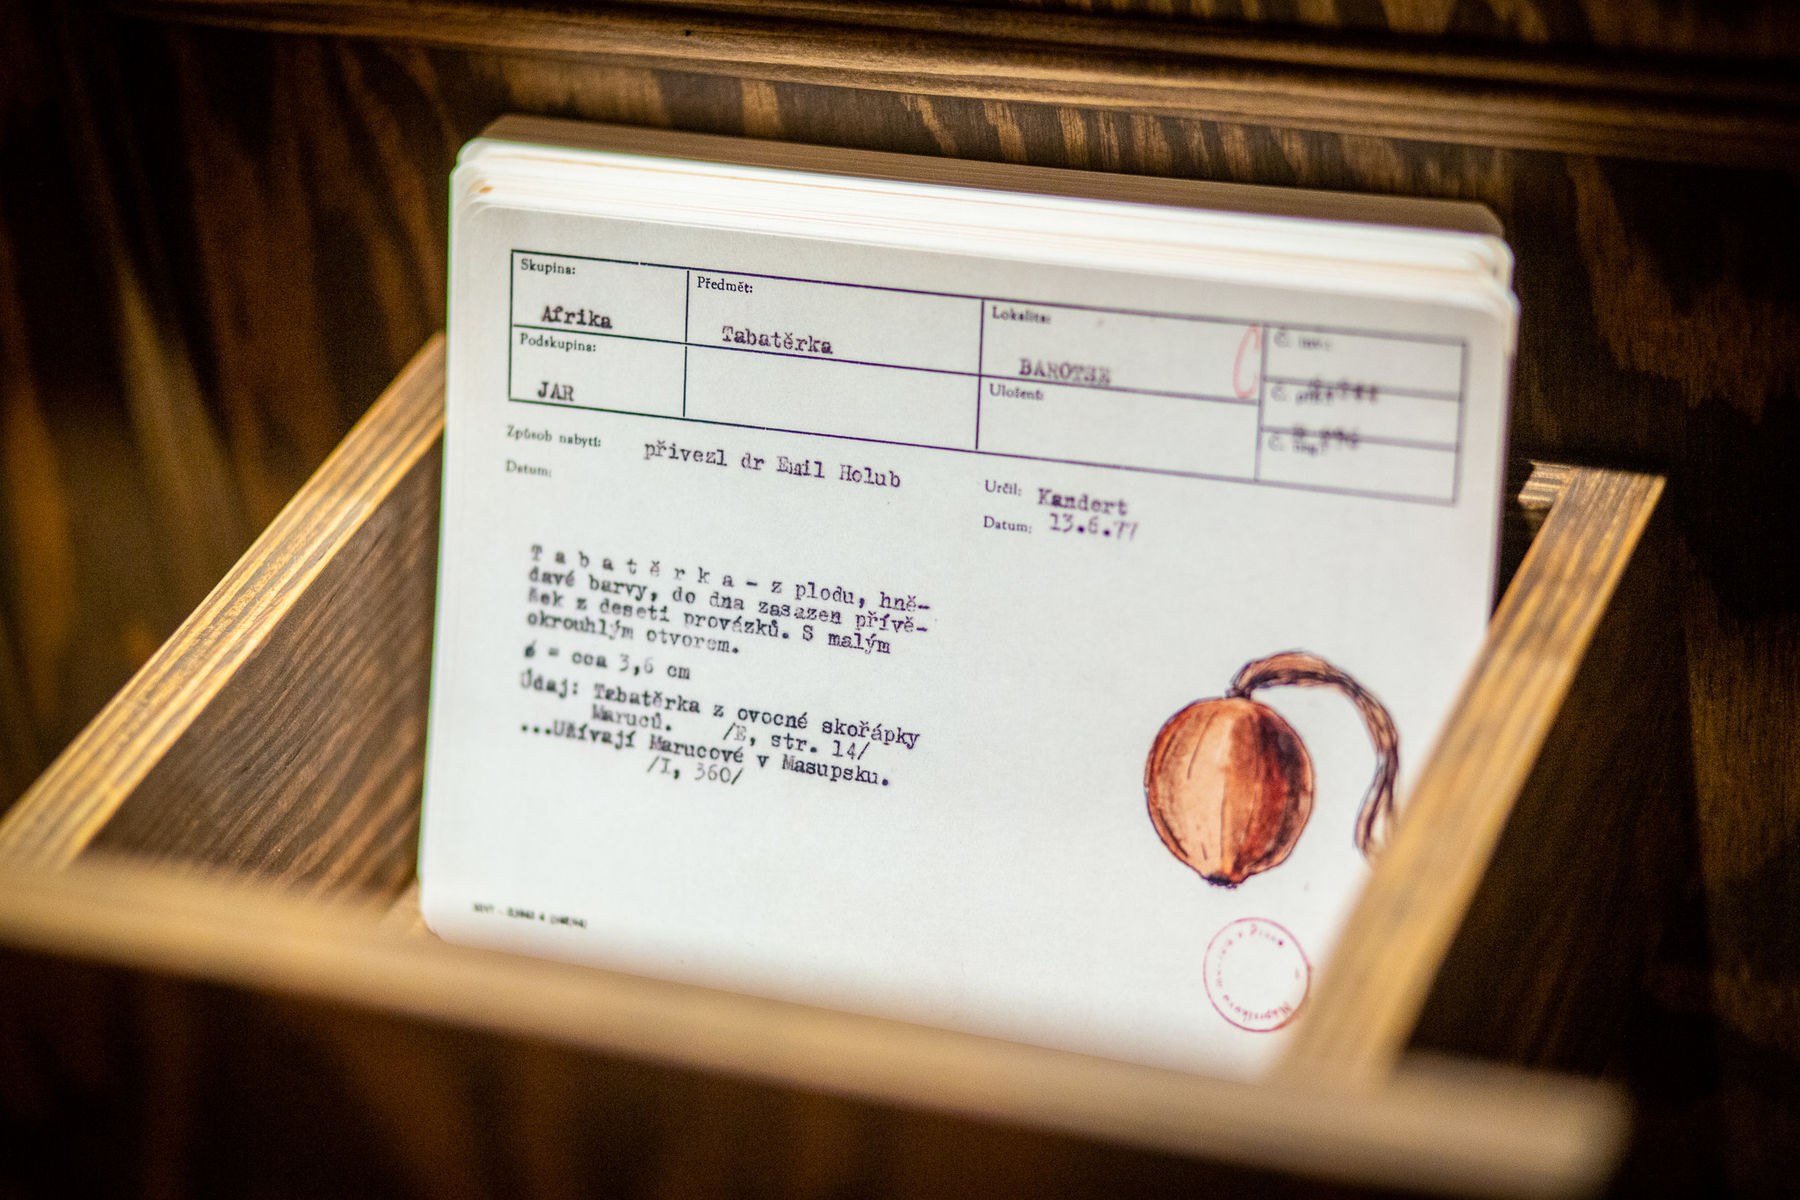 Skupina:
Afrika
Předmět:
Tabatěrka
Lokalita:
BAROTSE
Č. inv.:
Podskupina:
JAR
Uloženi:
Způsob nabytí: přivezl dr Emil Holub
Datum:
Určil: Kandert
Datum: 13.6.77
T a b a t ě r k a - z plodu, hně-
davé barvy, do dna zasazen přívě-
šek z deseti provázků. S malým
okrouhlým otvorem.
ø = cca 3,6 cm
Údaj: Tabatěrka z ovocné skořápky
Maruců. /E, str. 14/
...Užívají Marucové v Masupsku.
/I, 360/